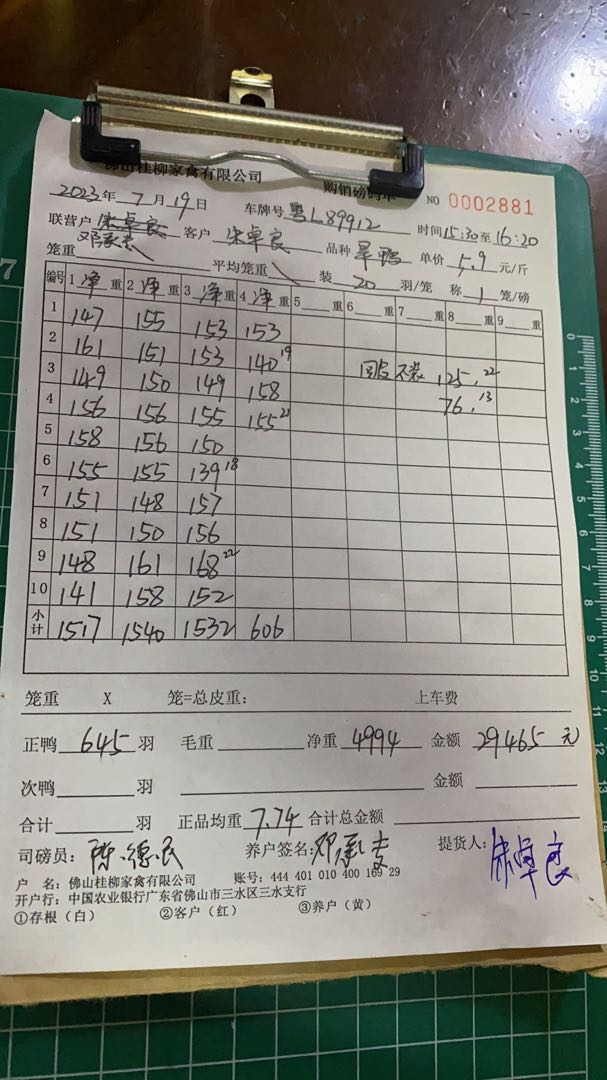 佛山桂柳家禽有限公司 购销磅码单 NO 0002881
2023年 7月 19日 车牌号 粤L89912 时间 15:30至16:20
联营户 朱卓良 客户 朱卓良 品种 旱鸭 单价 5.9 元/斤
笼重 平均笼重 装 20 羽/笼 称 1 笼/磅
编号 1 净重 2 净重 3 净重 4 净重 5 重 6 重 7 重 8 重 9 重
1 147 155 153 153
2 161 151 153 140 19
3 149 150 149 158 不装 125. 22
4 156 156 155 155 21 76. 13
5 158 156 150
6 155 155 139 18
7 151 148 157
8 151 150 156
9 148 161 168 22
10 141 158 152
小计 1517 1540 1532 606
笼重 X 笼=总皮重: 上车费
正鸭 645 羽 毛重 净重 4994 金额 29465 元
次鸭 羽 金额
合计 羽 正品均重 7.74 合计总金额
司磅员: 陈德民 养户签名: 提货人: 朱卓良
户 名: 佛山桂柳家禽有限公司 账号: 444 401 010 400 169 29
开户行: 中国农业银行广东省佛山市三水区三水支行
①存根(白) ②客户(红) ③养户(黄)
7
0
1
2
3
4
5
6
7
8
9
10
11
12
13